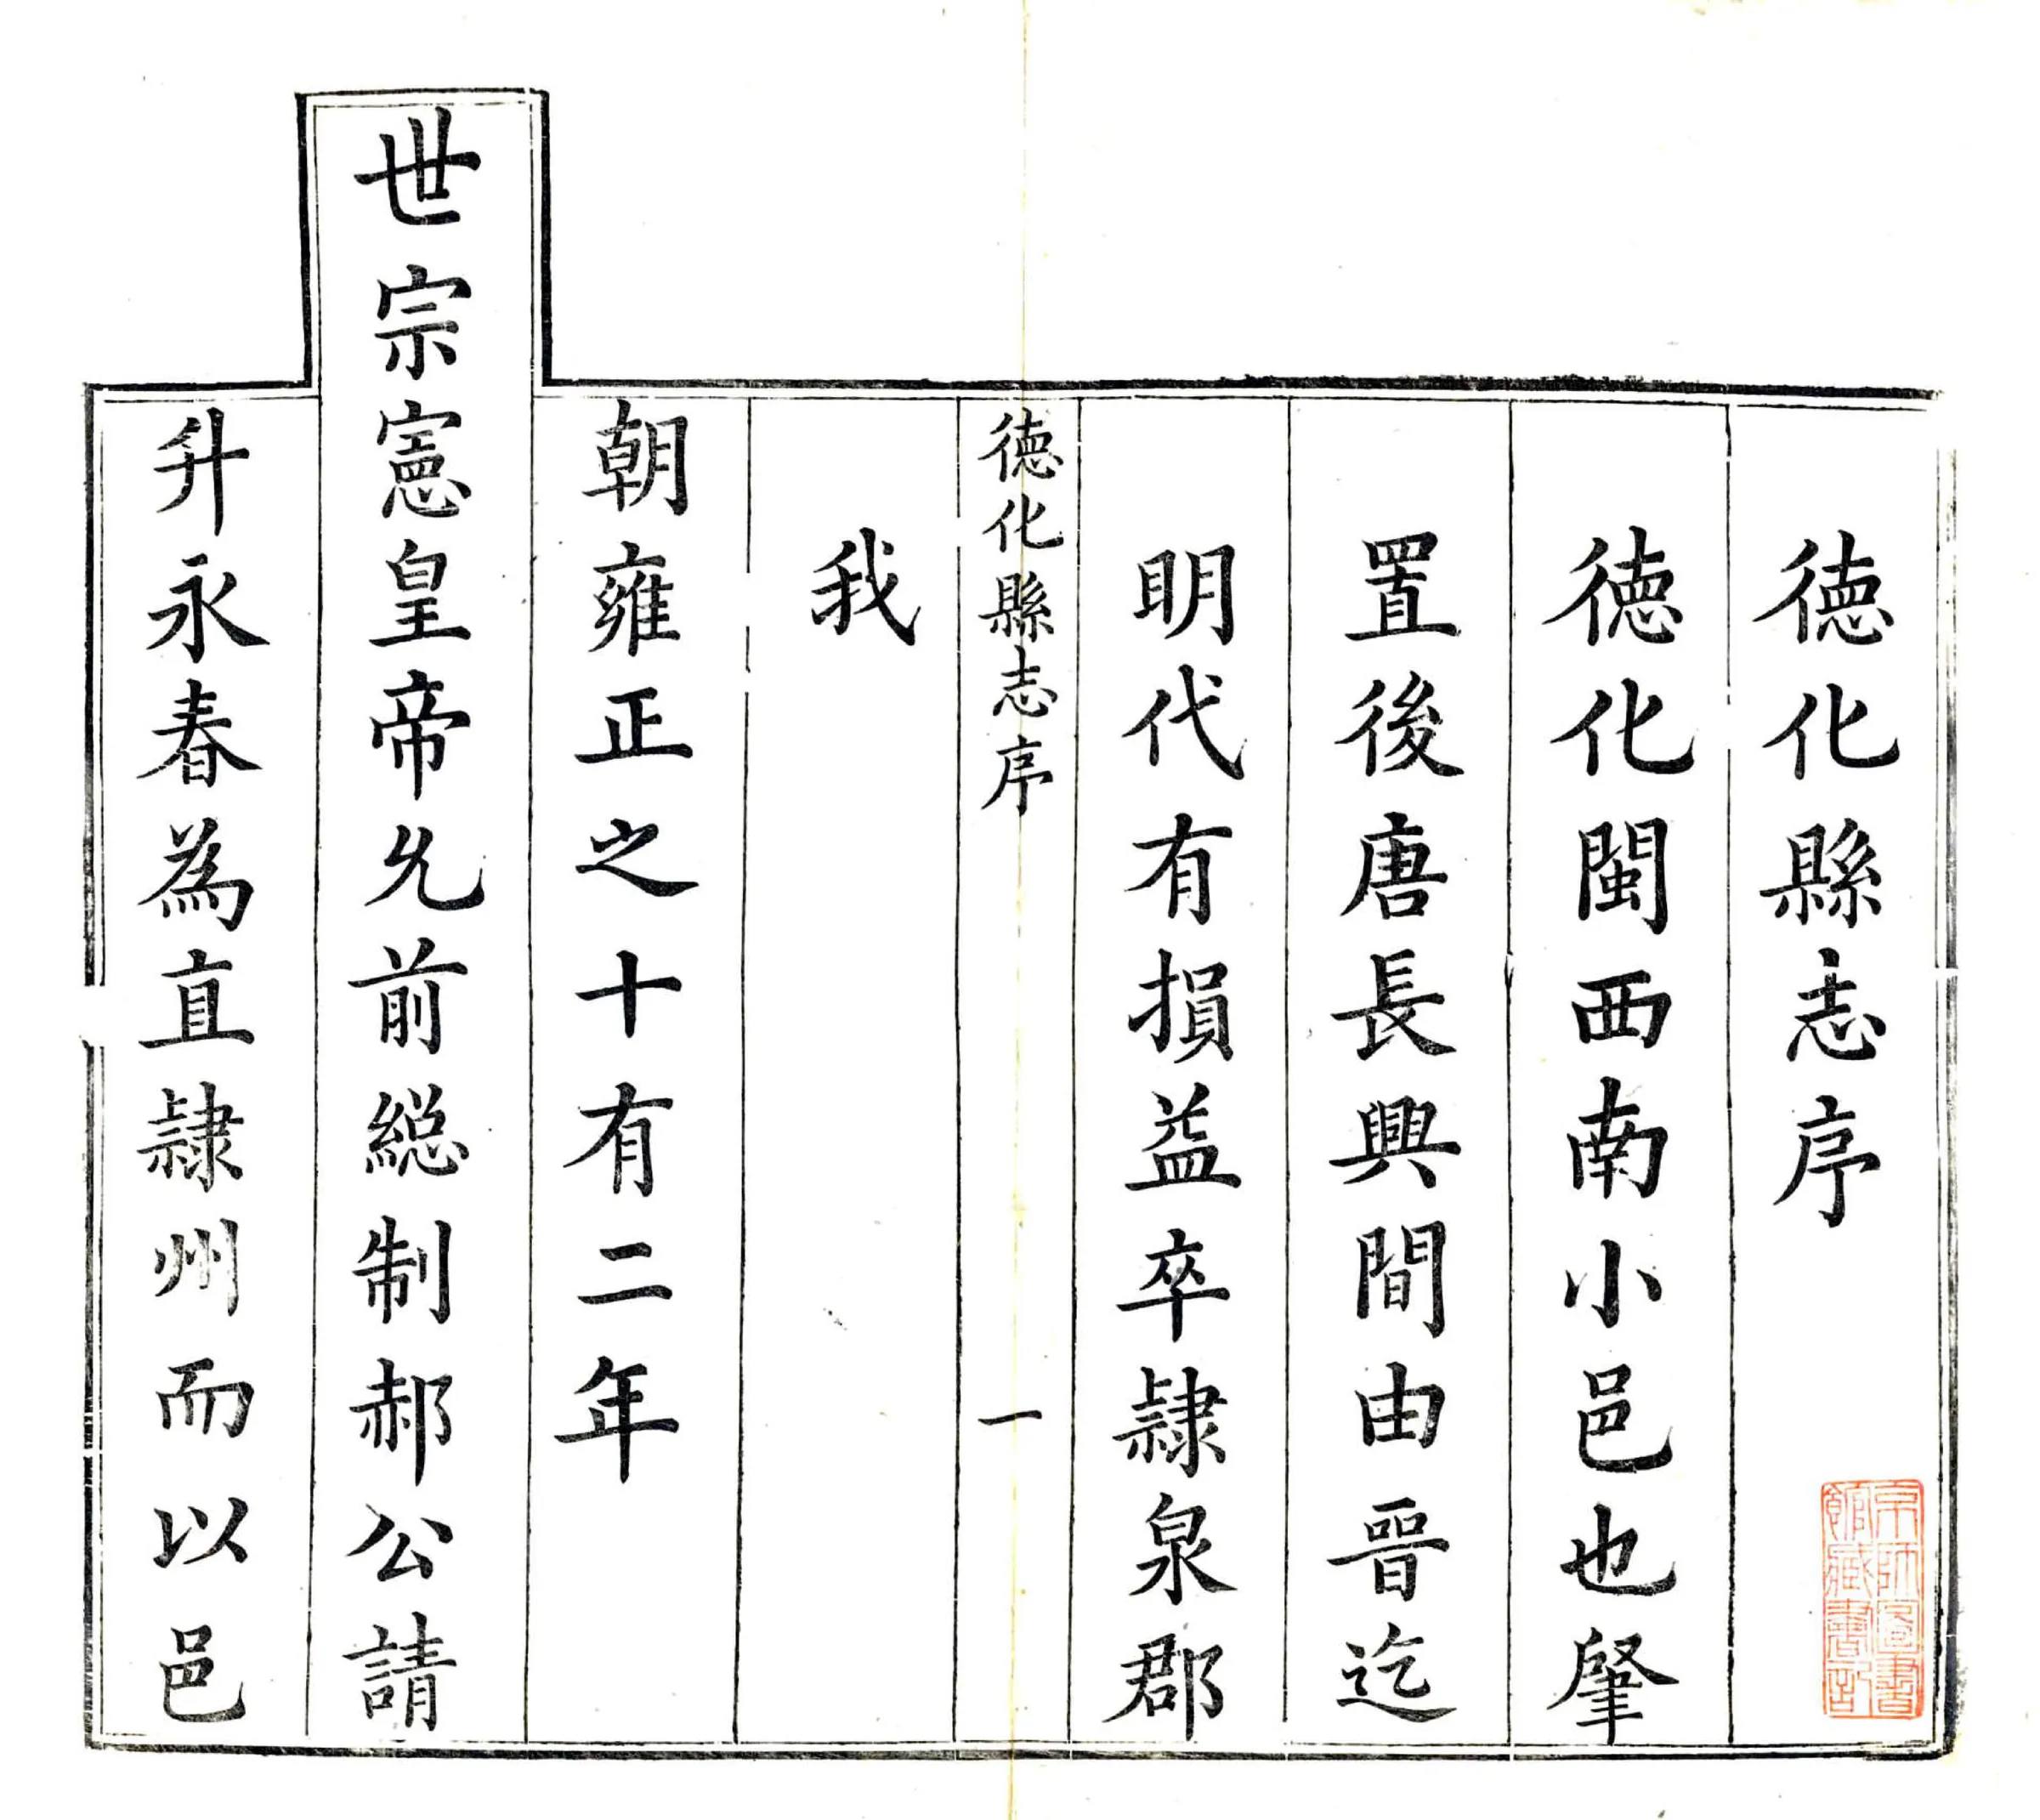 德化縣志序
德化閩西南小邑也肇
置後唐長興間由晉迄
明代有損益卒隷泉郡
德化縣志序 一
我
朝雍正之十有二年
世宗憲皇帝允前総制郝公請
升永春為直隷州而以邑
京師圖書
館藏書記